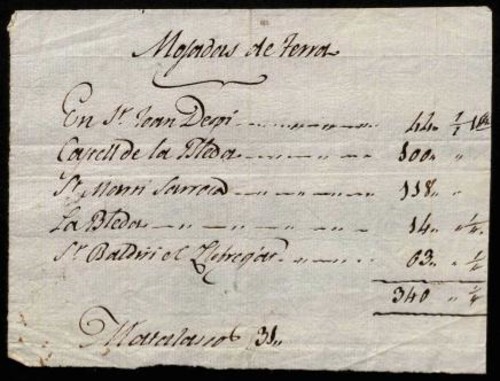 Mojadas de terra
En St. Joan Despí 44„ 1/2
Castell de la Bleda 100„ „
St. Martí Sarroca 118„ „
La Bleda 14„ „ 1/2
St. Baldiri el Llobregat 63„ „ 1/2
340 „ 1/2
Matalasos 31„